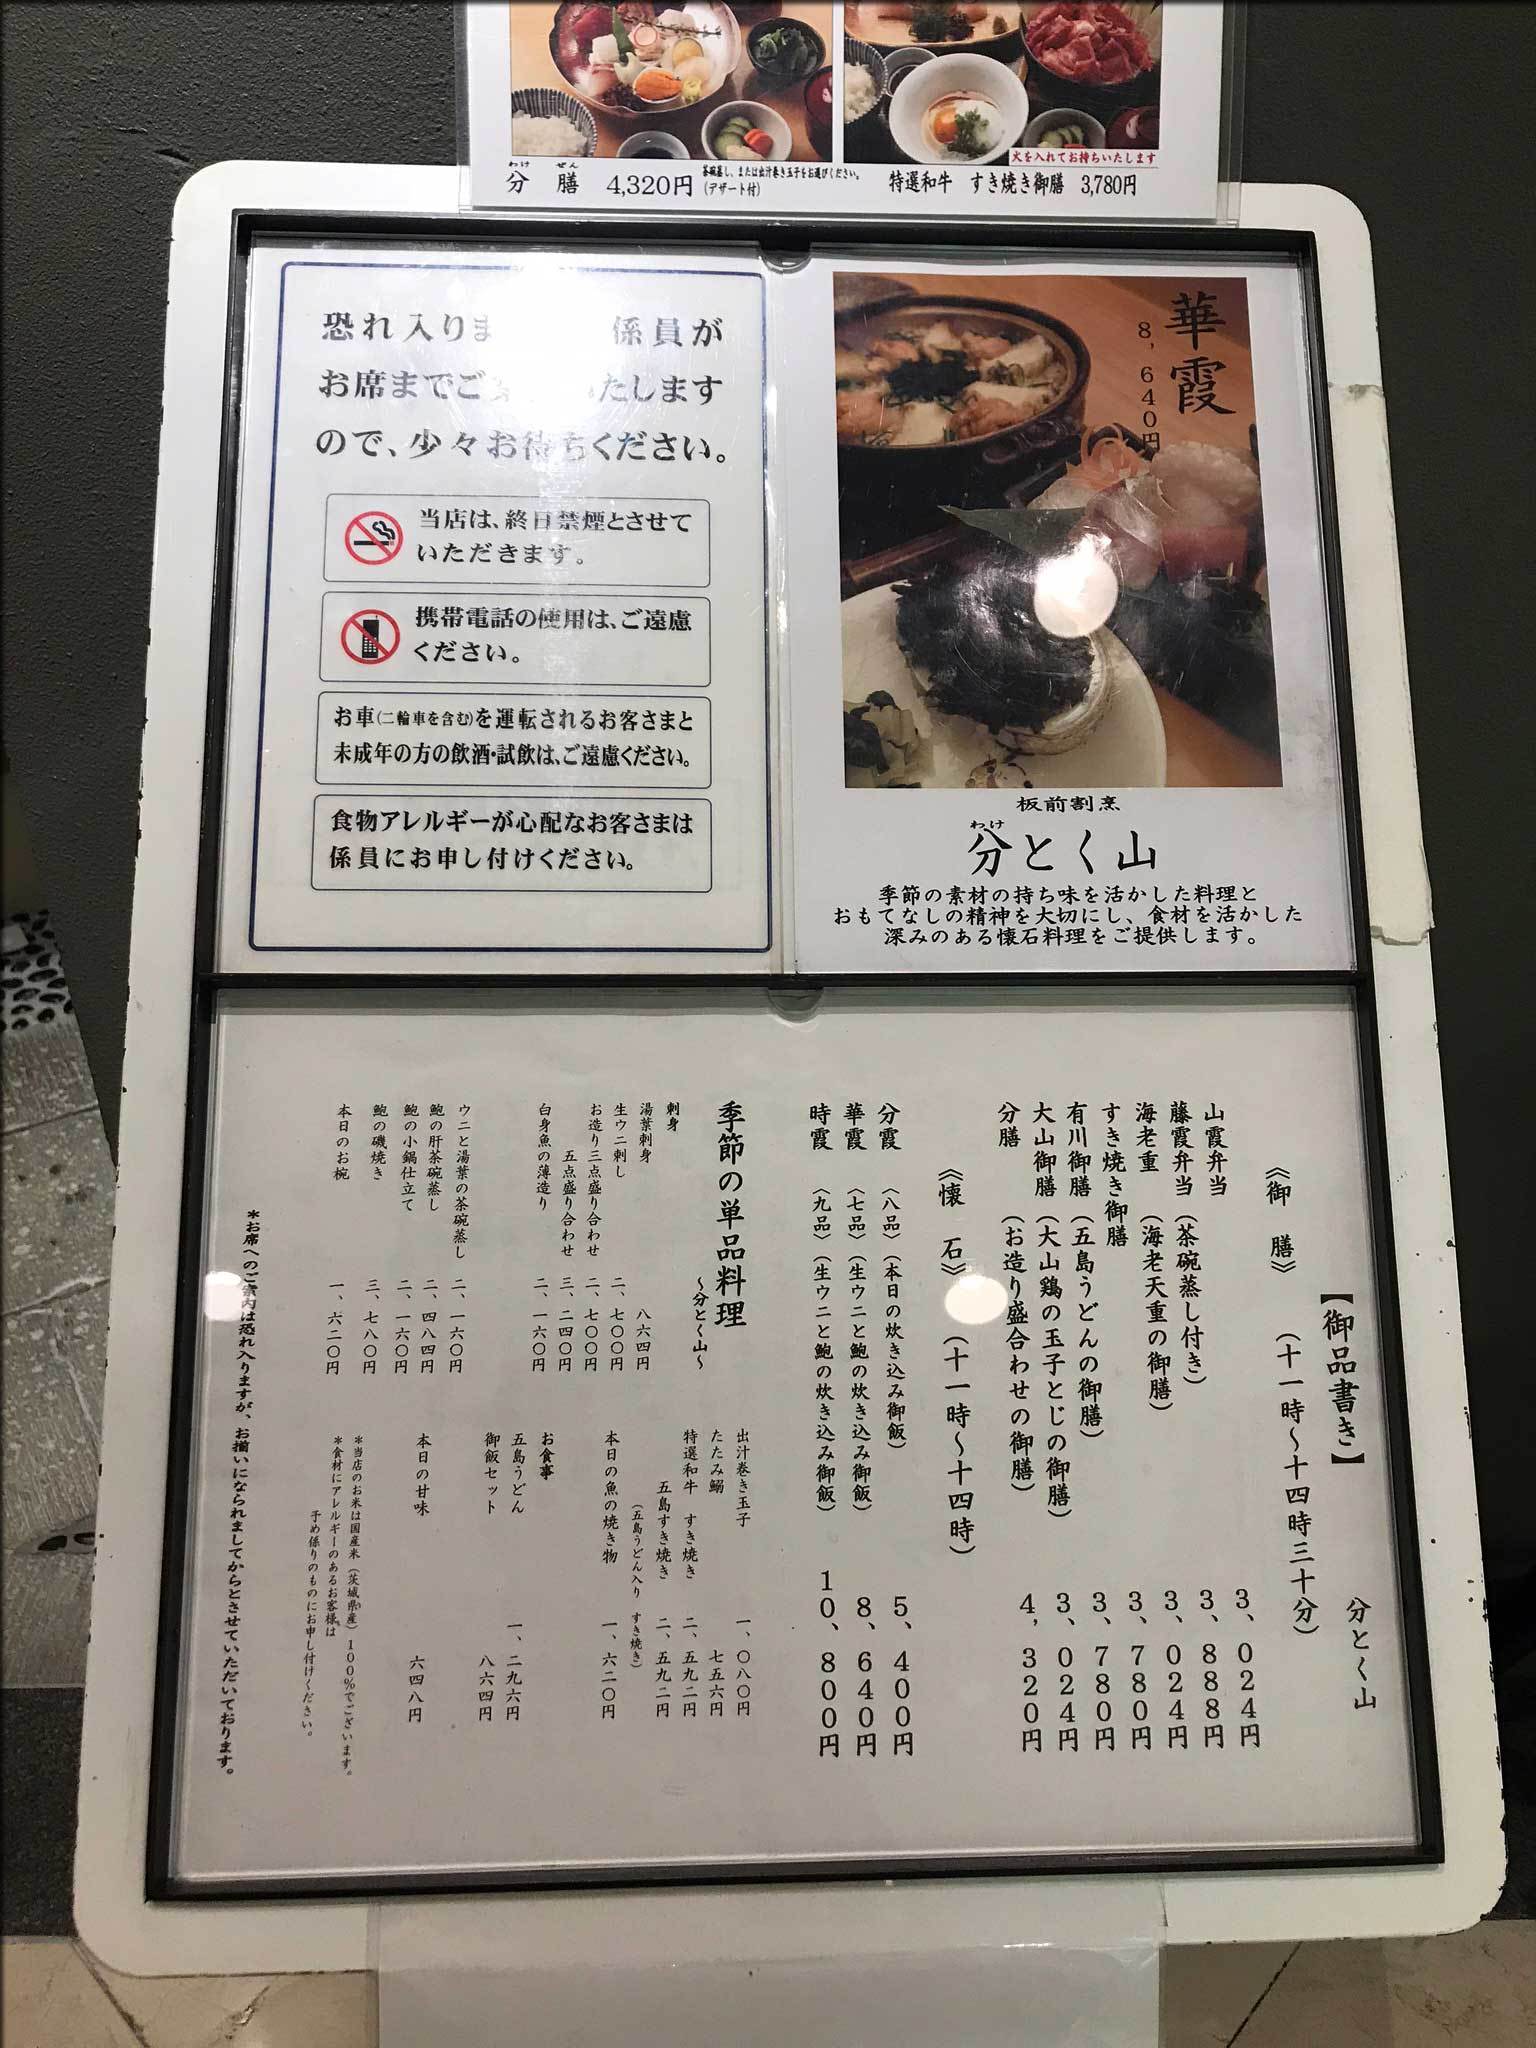 わけ ぜん
分 膳 4,320円
茶碗蒸し、または出汁巻き玉子をお選びください。
(デザート付)
火を入れてお持ちいたします
特選和牛 すき焼き御膳 3,780円
恐れ入りま 係員が
お席までご たします
ので、少々お待ちください。
当店は、終日禁煙とさせて
いただきます。
携帯電話の使用は、ご遠慮
ください。
お車(二輪車を含む)を運転されるお客さまと
未成年の方の飲酒・試飲は、ご遠慮ください。
食物アレルギーが心配なお客さまは
係員にお申し付けください。
華霞
8,640円
板前割烹
わけ
分とく山
季節の素材の持ち味を活かした料理と
おもてなしの精神を大切にし、食材を活かした
深みのある懐石料理をご提供します。
【御品書き】 分とく山
《御 膳》 (十一時〜十四時三十分)
山霞弁当 3,024円
藤霞弁当 (茶碗蒸し付き) 3,888円
海老重 (海老天重の御膳) 3,024円
すき焼き御膳 3,780円
有川御膳 (五島うどんの御膳) 3,780円
大山御膳 (大山鶏の玉子とじの御膳) 3,024円
分膳 (お造り盛合わせの御膳) 4,320円
《懐 石》 (十一時〜十四時)
分霞 〈八品〉(本日の炊き込み御飯) 5,400円
華霞 〈七品〉(生ウニと鮑の炊き込み御飯) 8,640円
時霞 〈九品〉(生ウニと鮑の炊き込み御飯) 10,800円
季節の単品料理
〜分とく山〜
刺身
湯葉刺身 八六四円
生ウニ刺し 二、七〇〇円
お造り三点盛り合わせ 二、七〇〇円
五点盛り合わせ 三、二四〇円
白身魚の薄造り 二、一六〇円
ウニと湯葉の茶碗蒸し 二、一六〇円
鮑の肝茶碗蒸し 二、四八四円
鮑の小鍋仕立て 二、一六〇円
鮑の磯焼き 三、七八〇円
本日のお椀 一、六二〇円
出汁巻き玉子 一、〇八〇円
たたみ鰯 七五六円
特選和牛 すき焼き 二、五九二円
五島すき焼き 二、五九二円
(五島うどん入り すき焼き)
本日の魚の焼き物 一、六二〇円
お食事
五島うどん 一、二九六円
御飯セット 八六四円
本日の甘味 六四八円
*当店のお米は国産米(茨城県産)100%でございます。
*食材にアレルギーのあるお客様は
予め係りのものにお申し付けください。
*お席へのご案内は恐れ入りますが、お揃いになられましてからとさせていただいております。